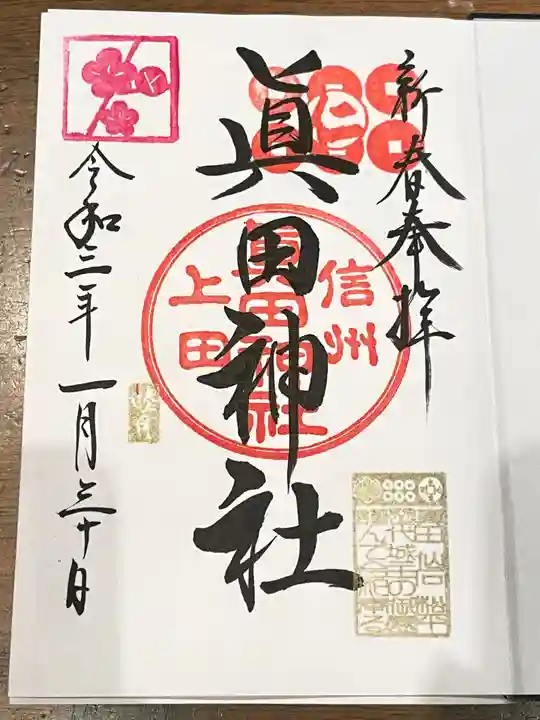 新春奉拝
眞田神社
信州
眞田神社
上田
令和三年一月三十日